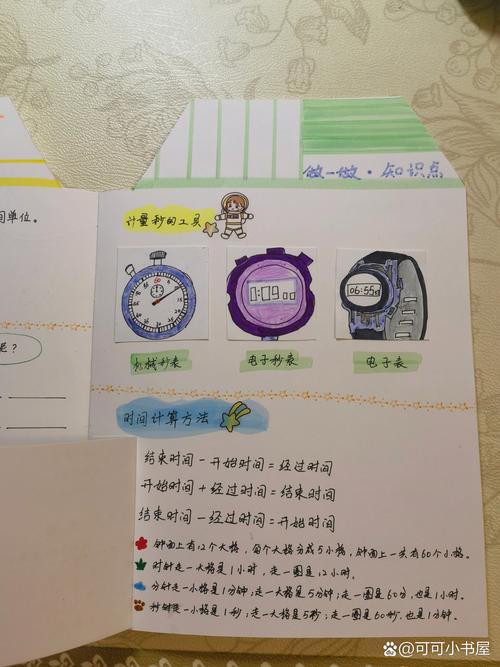 做一做·知识点
间单位。
计量秒的工具
60
0:09 00
06:55
机械秒表
电子秒表
电子表
呢？
时间计算方法
结束时间－开始时间＝经过时间
开始时间＋经过时间＝结束时间
结束时间－经过时间＝开始时间
钟面上有12个大格，每个大格分成5小格，钟面上一共有60个小格。
时针走一大格是1小时，走一圈是12小时。
分针走一小格是1分钟；走一大格是5分钟；走一圈是60分，也是1小时。
秒针走一小格是1秒；走一大格是5秒；走一圈是60秒，也是1分钟。
@可可小书屋